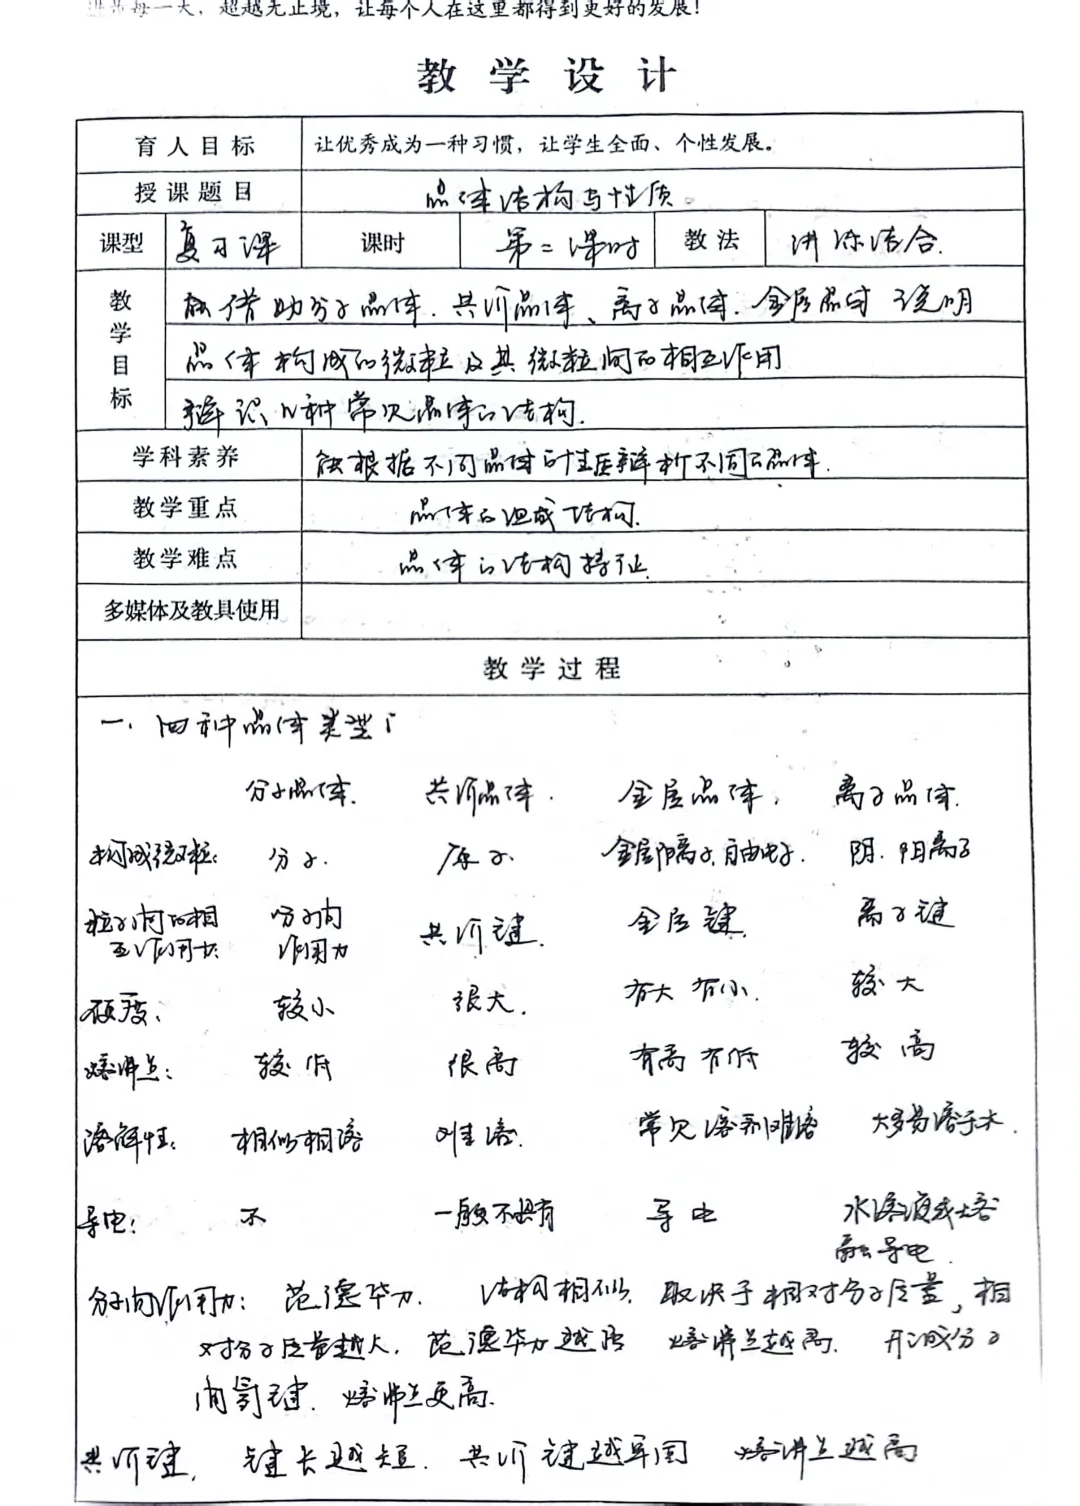 进步每一天，超越无止境，让每个人在这里都得到更好的发展！
教学设计
育人目标 让优秀成为一种习惯，让学生全面、个性发展。
授课题目 晶体结构与性质。
课型 复习课 课时 第二课时 教法 讲练结合.
教学目标 能借助分子晶体.共价晶体、离子晶体.金属晶体 说明
晶体构成的微粒及其微粒间的相互作用
辨识几种常见晶体的结构.
学科素养 能根据不同晶体的性质辨析不同的晶体.
教学重点 晶体的组成结构.
教学难点 晶体的结构特征
多媒体及教具使用
教学过程
一.四种晶体类型
分子晶体. 共价晶体. 金属晶体. 离子晶体.
构成微粒: 分子. 原子. 金属阳离子,自由电子. 阴.阳离子
粒子间的相互作用力: 分子间作用力 共价键. 金属键. 离子键
硬度: 较小 很大. 有大有小. 较大
熔沸点: 较低 很高 有高有低 较高
溶解性: 相似相溶 难溶. 常见溶剂难溶 大多易溶于水.
导电: 不 一般不具有 导电 水溶液或熔融导电.
分子间作用力: 范德华力. 结构相似. 取决于相对分子质量,相
对分子质量越大,范德华力越强 熔沸点越高. 形成分子
间氢键.熔沸点更高.
共价键, 键长越短.共价键越牢固 熔沸点越高